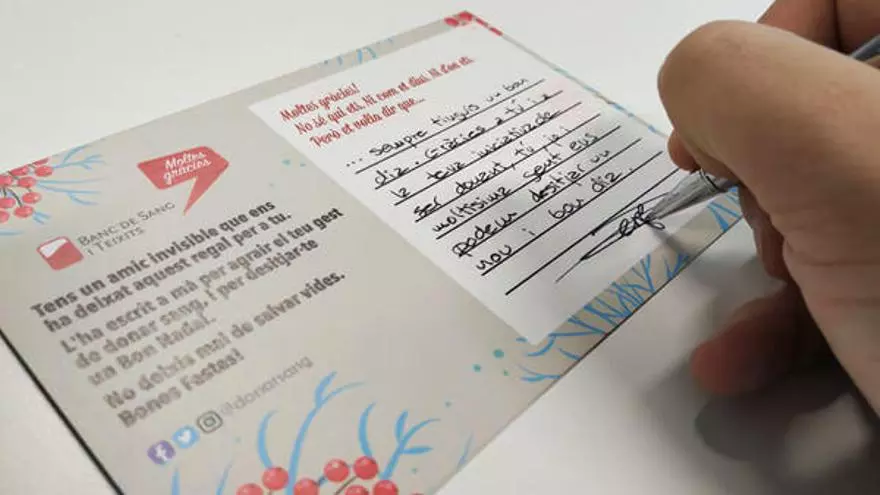 Moltes gràcies
BANC DE SANG
I TEIXITS
Tens un amic invisible que ens
ha deixat aquest regal per a tu.
L'ha escrit a mà per agrair el teu gest
de donar sang, i per desitjar-te
un Bon Nadal.
No deixis mai de salvar vides.
Bones Festes!
@donarsang
Moltes gràcies!
No sé qui ets. Ni com et dius. Ni d'on ets.
Però et volia dir que...
... sempre tinguis un bon
dia. Gràcies a tú i a
la teva iniciativa de
ser donant, tú i
moltisima gent ens
podem desitjar un
nou i bon dia.